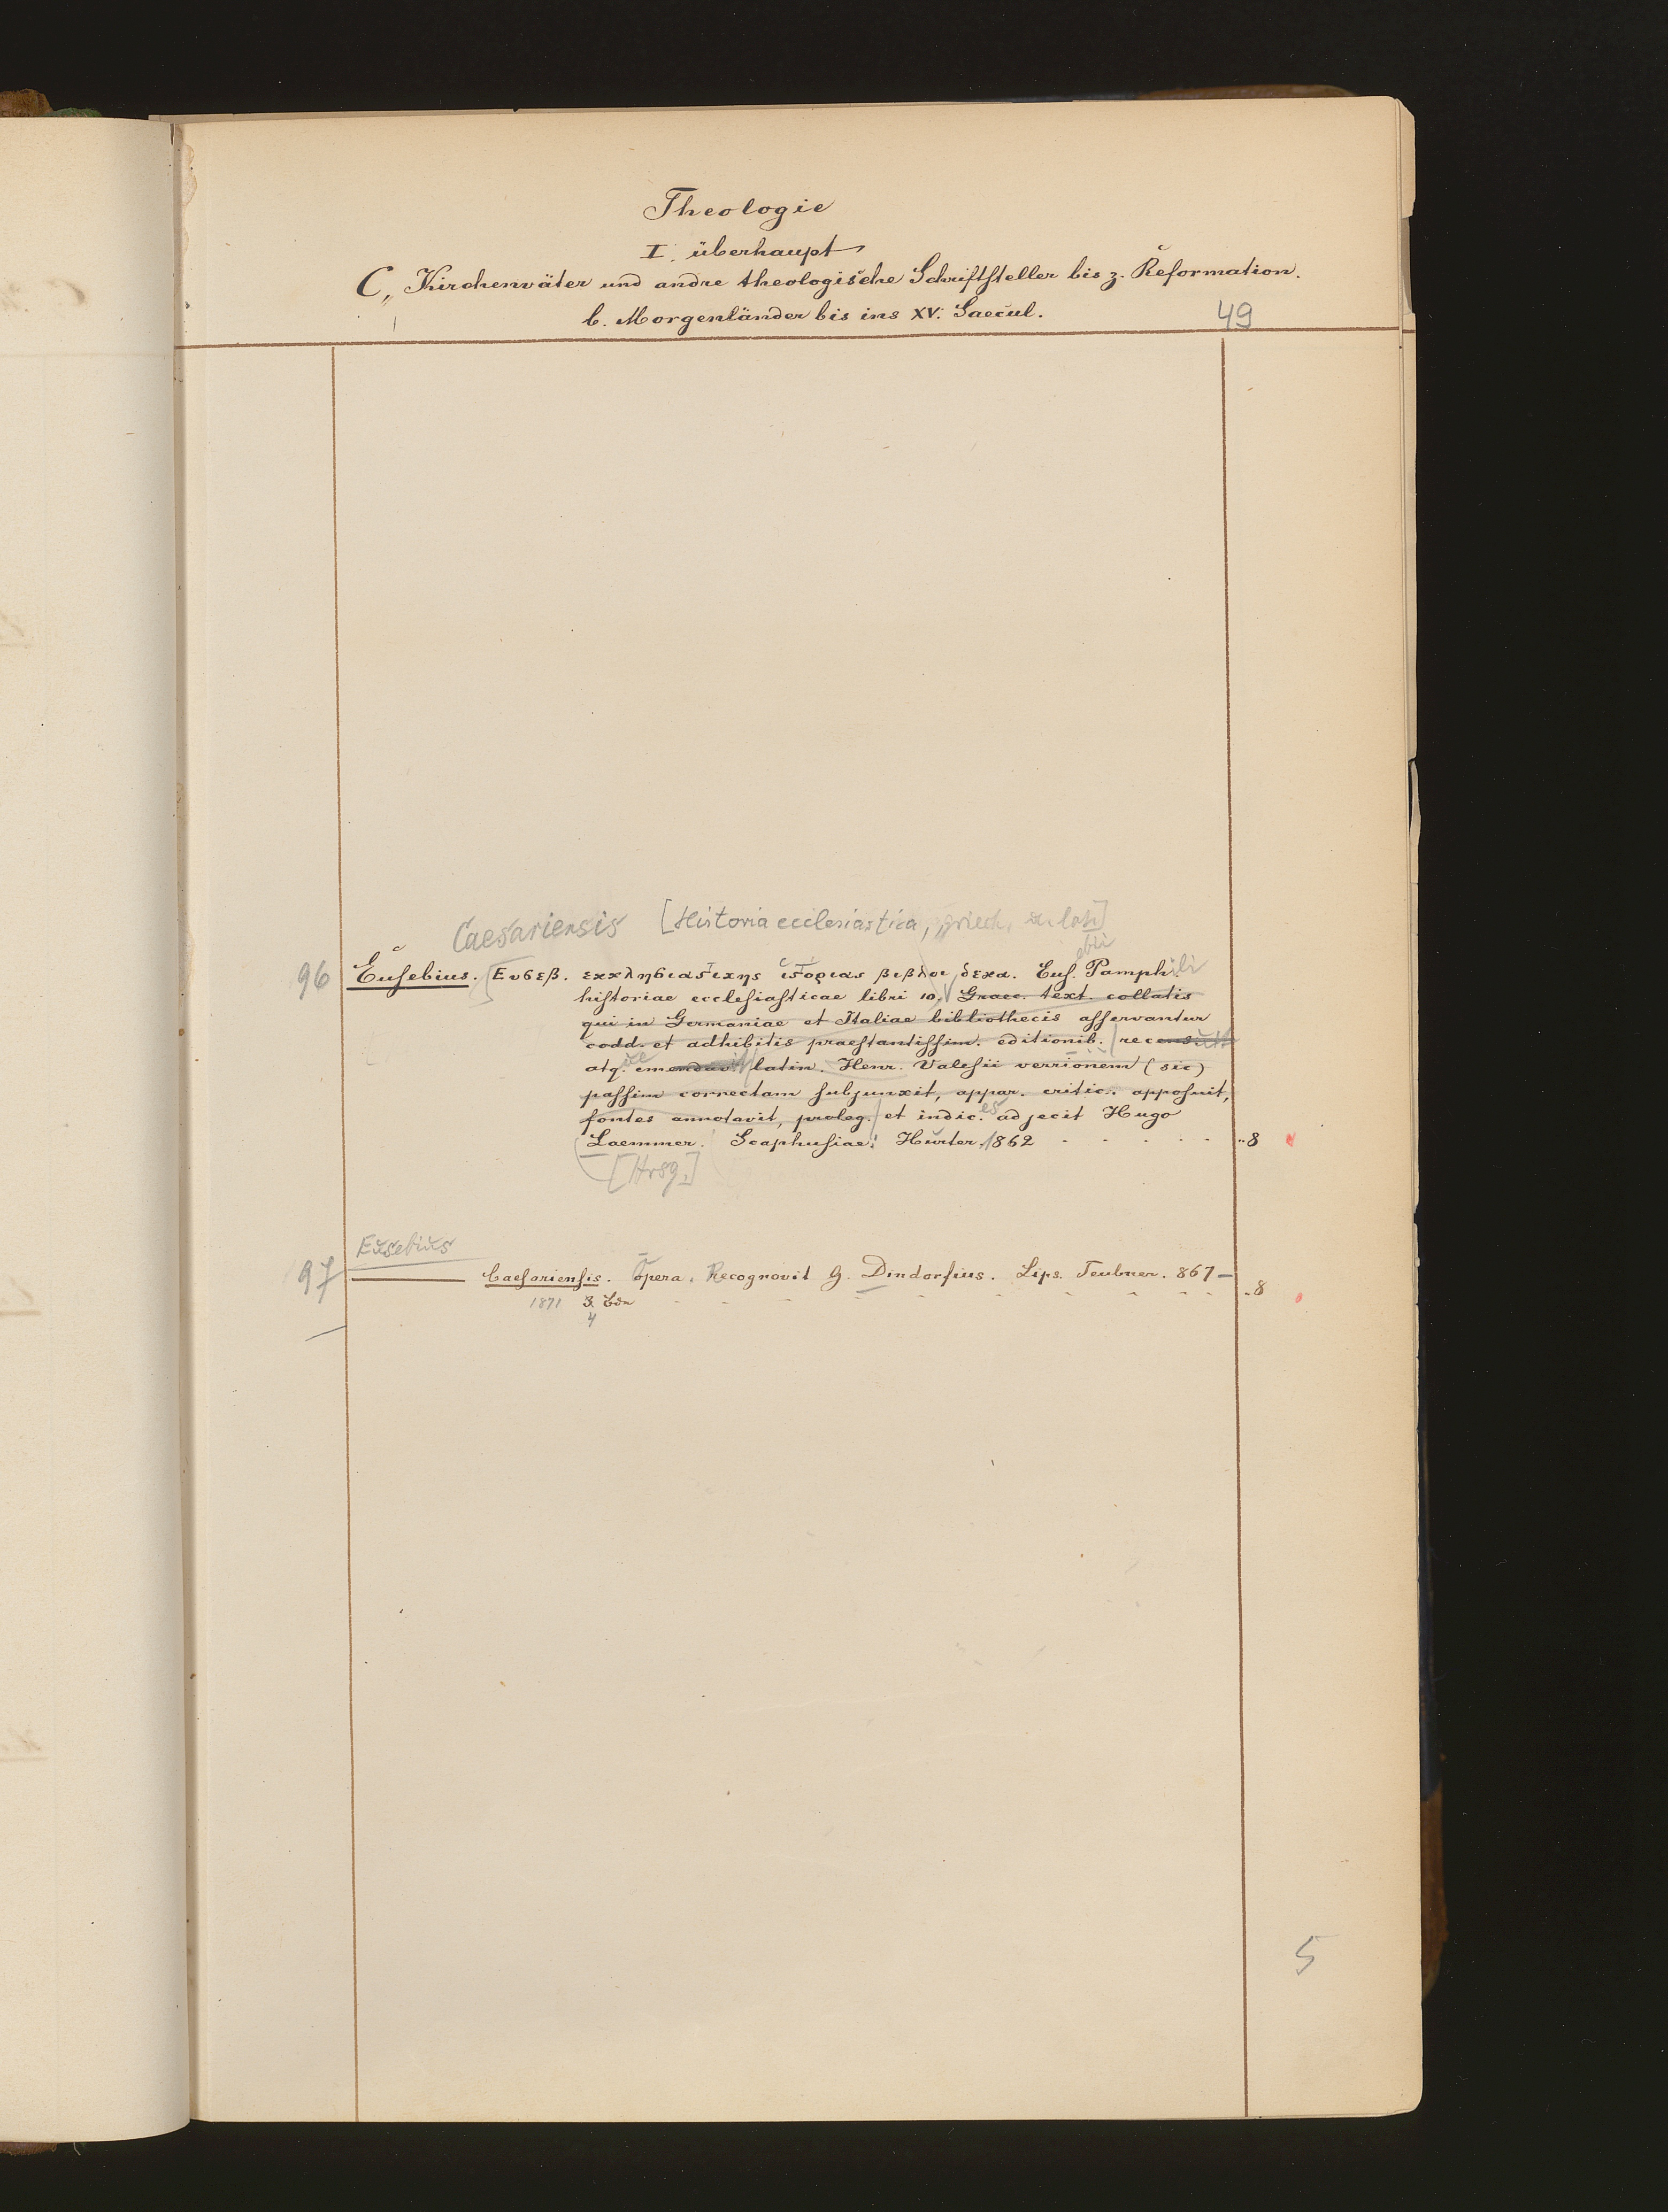 Theologie
I. überhaupt
C„ Kirchenväter und andre theologische Schriftsteller bis z. Reformation.
b. Morgenländer bis ins XV. Saecul.
49
Caesariensis [Historia ecclesiastica, griech. u. lat.]
96 Eusebius. Ευσεβ. εκκλησιαστικης ιστοριας βιβλοι δεκα. Eus. Pamphili
historiae ecclesiasticae libri 10. Graec. text. collatis
qui in Germaniae et Italiae bibliothecis asservantur
codd. et adhibitis praestantissim. editionib. recensuit
atq. emendav. latin. Henr. Valesii verrionem (sic)
passim correctam subjunxit, appar. critic. apposuit,
fontes annotavit, proleg. et indic.es adjecit Hugo
Laemmer. Scaphusiae: Hurter, 1862 - - - - - ..8
[Hrsg.]
Eusebius
97 Caesariensis. Opera. Recognovit G. Dindorfius. Lips. Teubner. 867-
1871 3. Bde - - - - - - - - ..8
4
5